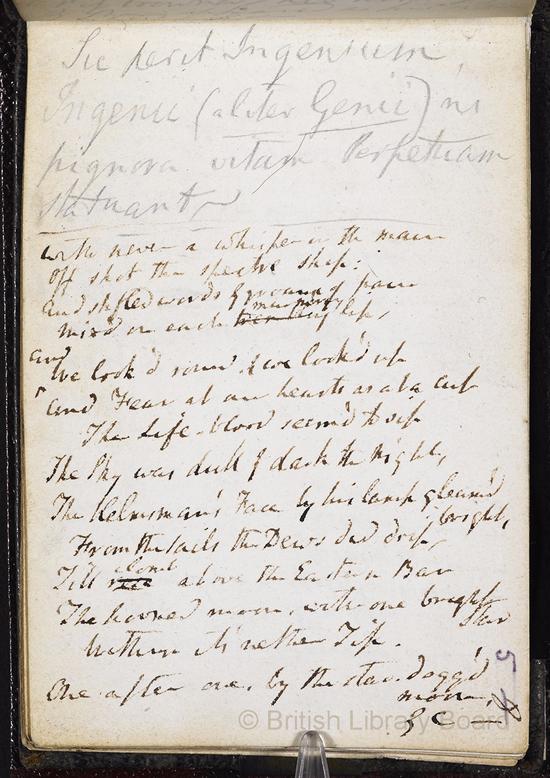 Sic perit Ingenium,
Ingenii (aliter Genii) ni
pignora vitam Perpetuam
statuant—
with never a whisper in the main
Off shot the spectre ship:
And stifled words & groans of pain
murmuring
mix'd on each trembling lip,
and
We look'd round, & we look'd up
and Fear at our hearts as at a cup
The Life-blood seem'd to sip
The Sky was dull & dark the Night,
The Helmsman's Face by his lamp gleam'd
bright,
From the sails the Dews did drip,
Till clomb above the Eastern Bar
The horned moon, with one bright
Star
Within its nether Tip.
One after one, by the star-dogg'd
moon,
&c—
54
© British Library Board